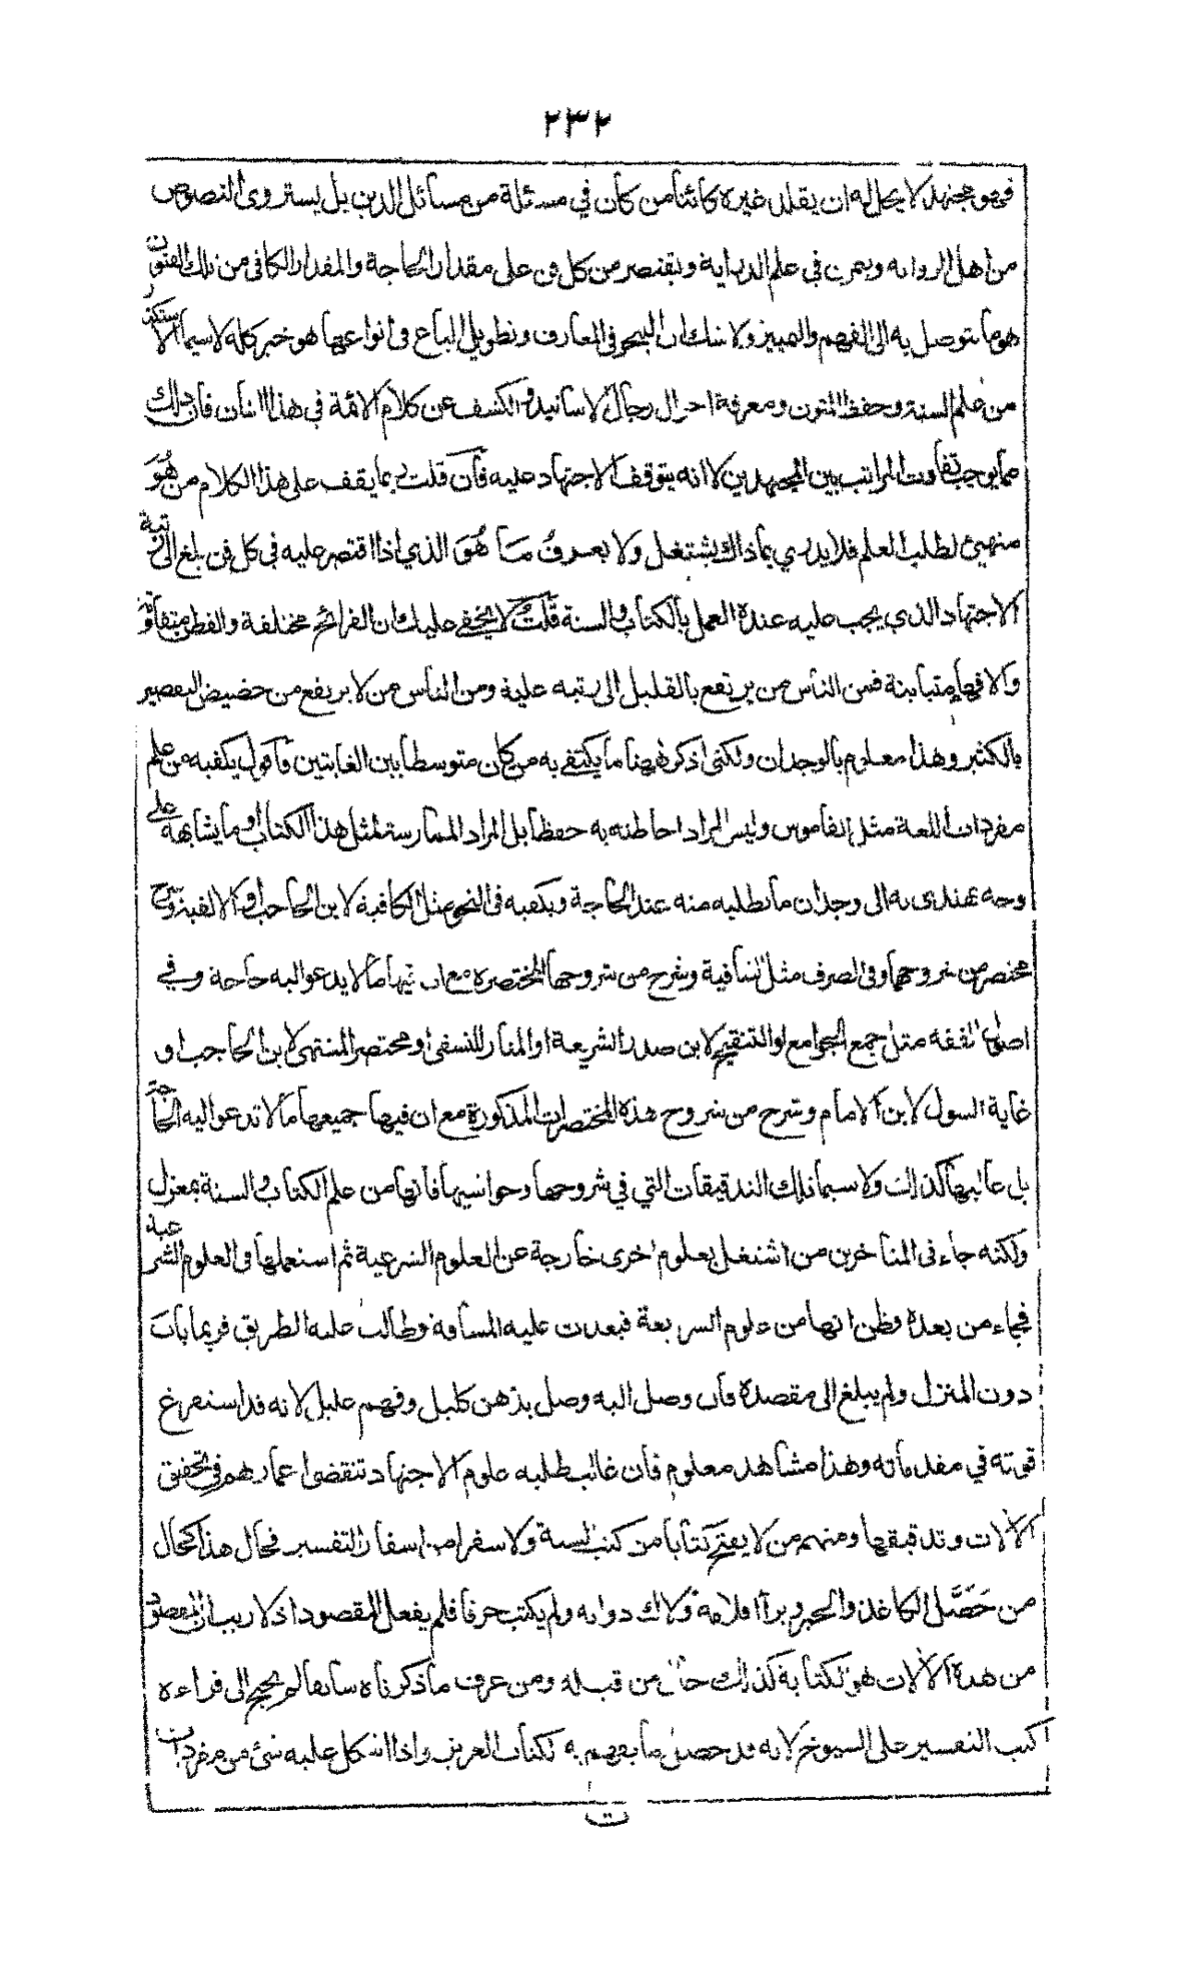 ٢٣٢
فهو مجتهد لا يحل له ان يقلد غيره كائنا من كان في مسئلة من مسائل الدين بل يستروى النصوص
من اهل الرواية ويتمرن في علم الدراية ويقتصر من كل فن على مقدار الحاجة والمقدار الكافى من ذلك الفنون
هو ما يتوصل به الى الفهم والتمييز ولا شك ان التبحر فى المعارف وتطويل الباع فى انواعها هو خير كله لا سيما الاستكثار
من علم السنة وحفظ المتون ومعرفة احوال رجال الاسانيد والكشف عن كلام الائمة في هذا الشان فان ذلك
مما يوجب تفاوت المراتب بين المجتهدين لا انه يتوقف الاجتهاد عليه فأن قلت ربما يقف على هذا الكلام من هُوَ
متهيئ لطلب العلم فلا يدري بما ذا يشتغل ولا يعرفُ مَا هُوَ الذي اذا اقتصر عليه في كل فن بلغ الى رتبة
الاجتهاد الذي يجب عليه عنده العمل بالكتاب والسنة قلت لا يخفى عليك ان القرائح مختلفة والفطن متفاوتة
والافهام متباينة فمن الناس من يرتفع بالقليل الى رتبه علية ومن الناس من لا يرتفع من حضيض التقصير
بالكثير وهذا معلوم بالوجدان ولكنى اذكر ههنا ما يكتفى به من كان متوسطا بين الغايتين فاقول يكفيه من علم
مفردات اللغة مثل القاموس وليس المراد احاطته به حفظا بل المراد الممارسة لمثل هذا الكتاب او ما يشابهه على
وجه يهتدى به الى وجدان ما يطلبه منه عند الحاجة ويكفيه فى النحو مثل الكافية لابن الحاجب او الالفية وشرح
مختصر من شروحها وفى الصرف مثل الشافية وشرح من شروحها المختصره مع ان فيها ما لا يدعو اليه حاجة وفي
اصول الفقه مثل جمع الجوامع او التنقيح لابن صدر الشريعة او المنار للنسفى او مختصر المنتهى لابن الحاجب او
غاية السول لابن الامام وشرح من شروح هذه المختصرات المذكورة مع ان فيها جميعها ما لا تدعو اليه الحاجة
بل غالبها كذلك ولا سيما تلك التدقيقات التي في شروحها وحواشيها فانها من علم الكتاب والسنة بمعزل
ولكنه جاء فى المتأخرين من اشتغل بعلوم اخرى خارجة عن العلوم الشرعية ثم استعملها فى العلوم الشرعية
فجاء من بعده فظن انها من علوم الشريعة فبعدت عليه المسافة وطالت عليه الطريق فربما بات
دون المنزل ولم يبلغ الى مقصده فان وصل اليه وصل بذهن كليل وفهم عليل لانه قد استفرغ
قوته في مقدماته وهذا مشاهد معلوم فان غالب طلبه علوم الاجتهاد تنقضى اعمارهم في تحقيق
الآلات وتدقيقها ومنهم من لا يفتح كتابا من كتب السنة ولا سفرا من اسفار التفسير فحال هذا كحال
من حَصَّل الكاغذ والحبر وبرا اقلامه ولاك دواته ولم يكتب حرفا فلم يفعل المقصود اذ لا ريب ان المقصود
من هذه الآلات هو الكتابة كذلك حال من قبله ومن عرف ما ذكرناه سابقا لم يحتج الى قراءه
كتب التفسير على الشيوخ لانه قد حصل ما يفهم به الكتاب العزيز واذا اشكل عليه شئ من مفردات
ت